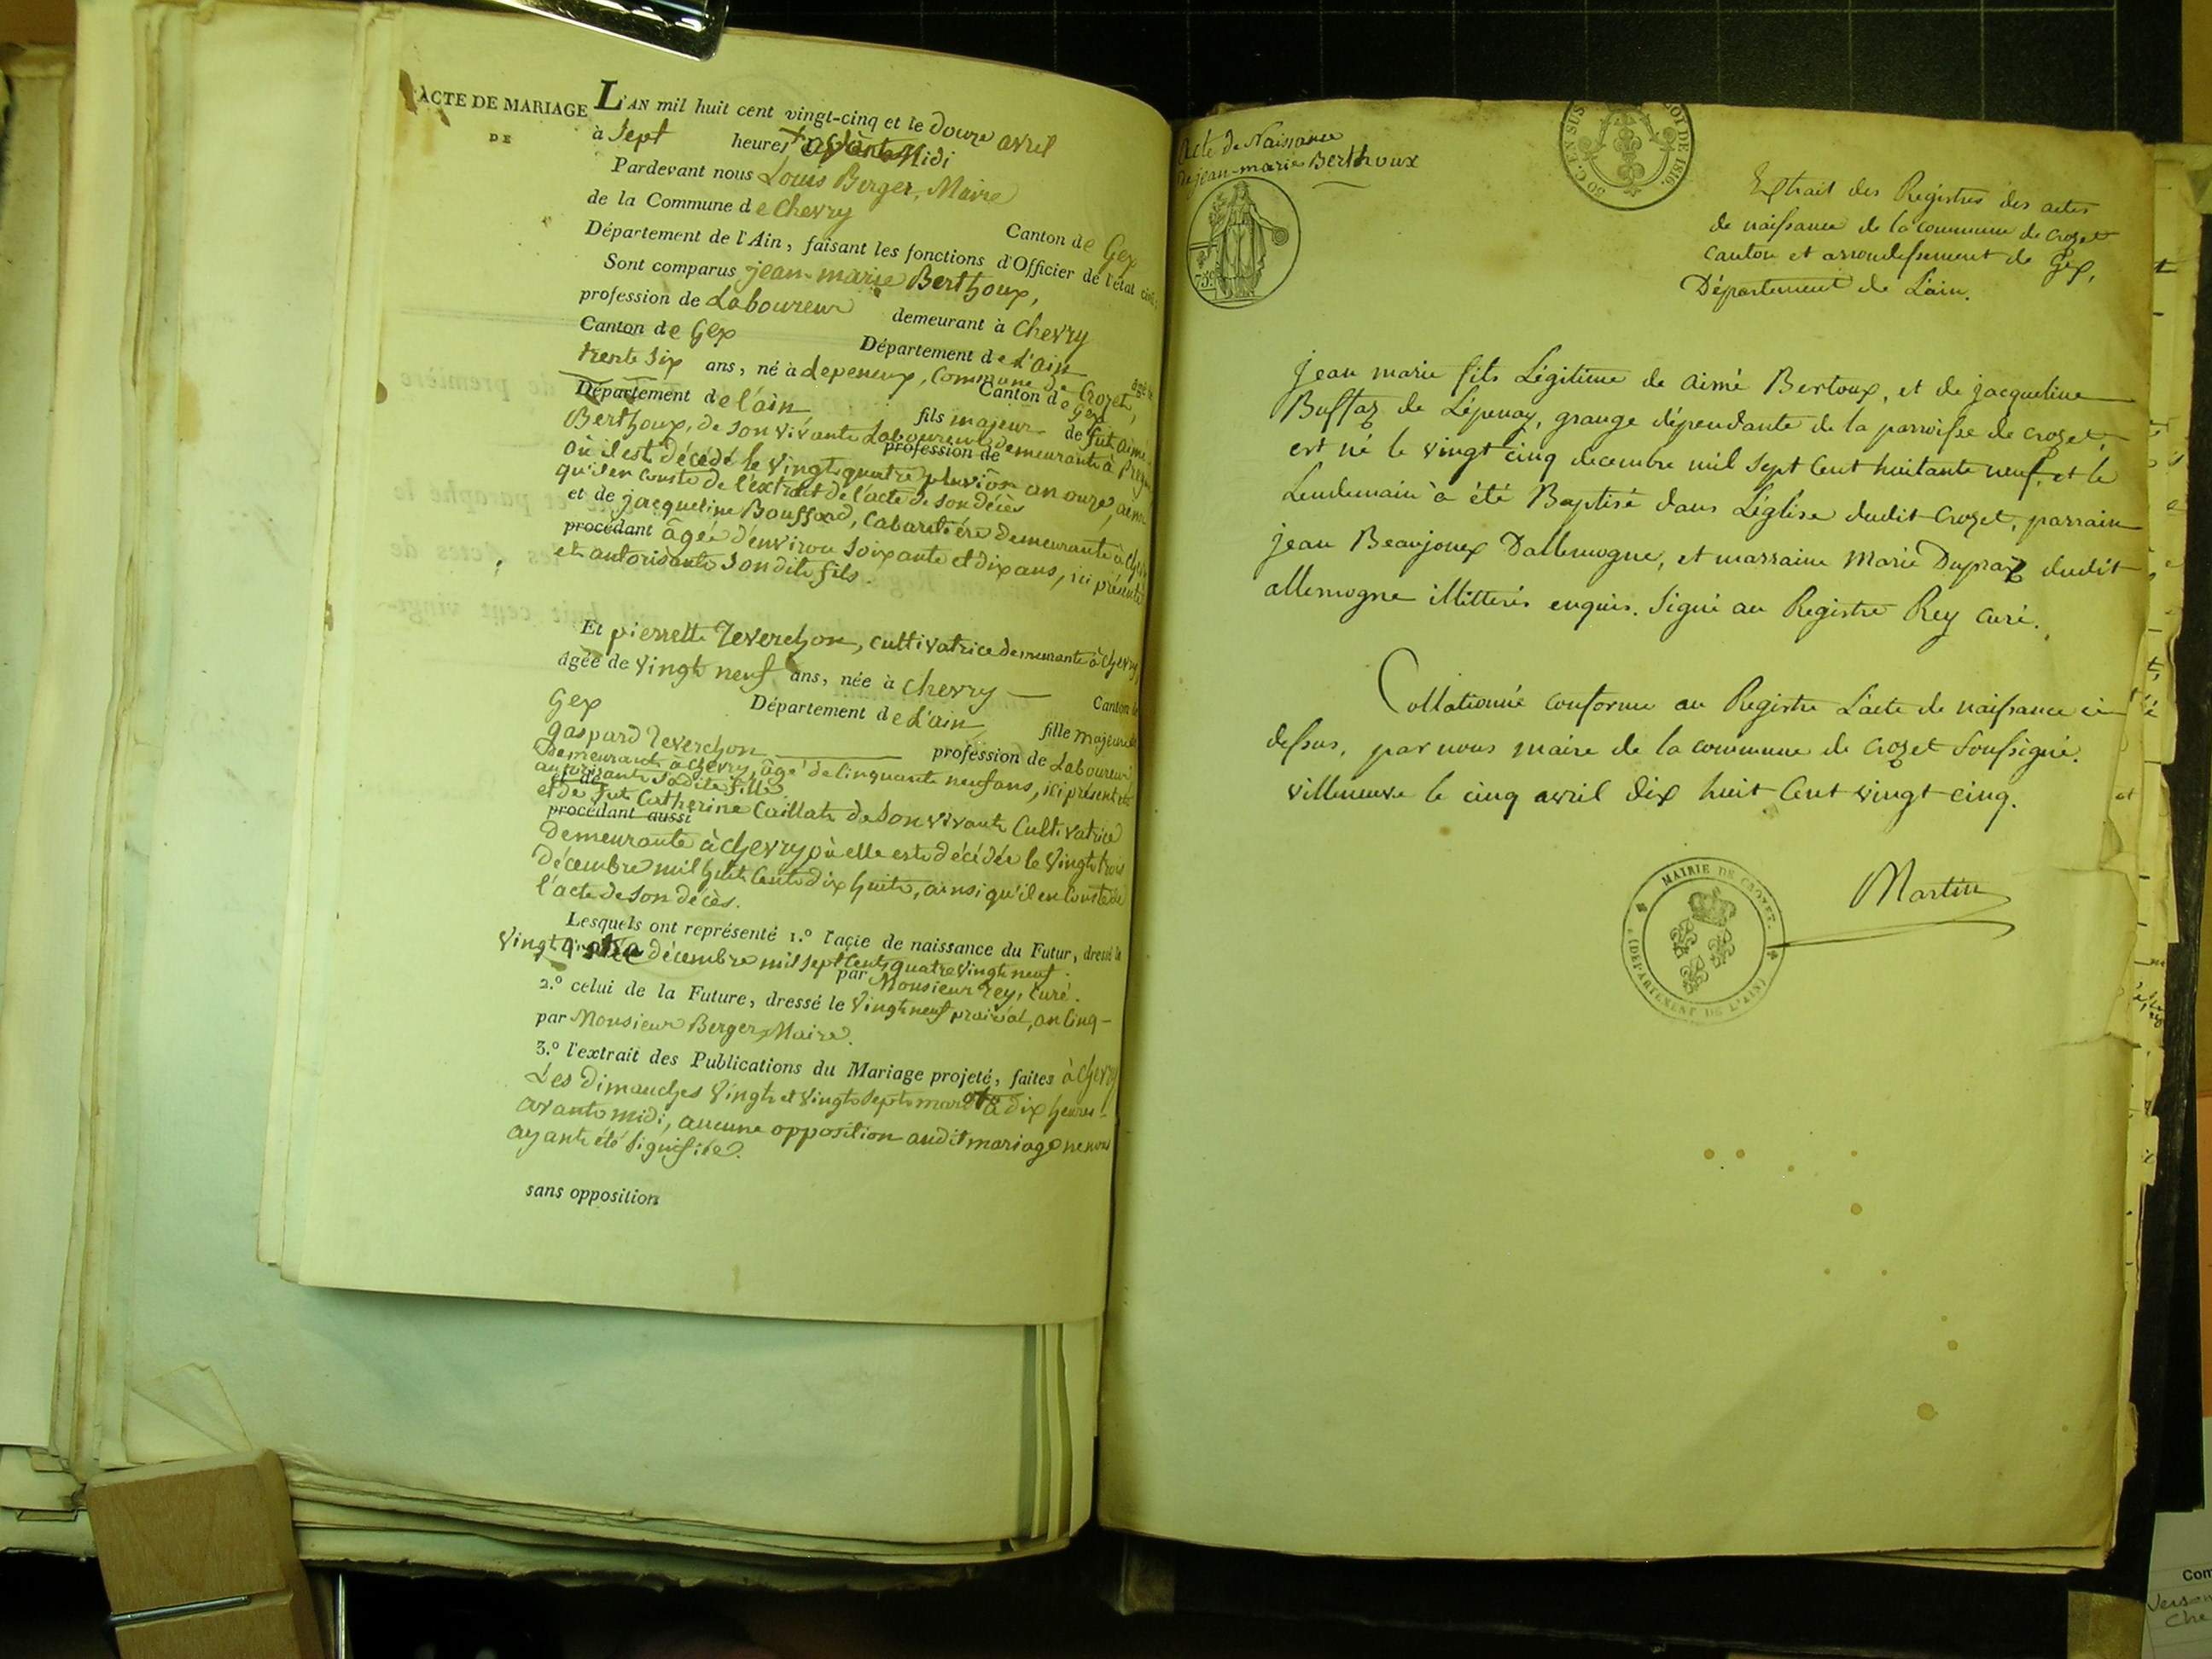 ACTE DE MARIAGE
DE
L'AN mil huit cent vingt-cinq et le douze avril
à Sept heures Midi
Pardevant nous Louis Berger, Maire
de la Commune de Chevry Canton de Gex
Département de l'Ain, faisant les fonctions d'Officier de l'état civil.
Sont comparus jean-marie Berthoux,
profession de Laboureur demeurant à Chevry
Canton de Gex Département de L'ain agé de
trente Six ans, né à depeneux, Commune de Crozet,
Département de l'ain Canton de Gex
fils majeur de fut aimé
Berthoux, de Son vivant Laboureur demeurant à
profession de
où il est décédé le vingt quatre pluviose an onze, ainsi
qu'il en conste de l'extrait de l'acte de Son décès
et de jacqueline Bouffard, Cabaretière demeurante à
procédant âgée d'environ Soixante et dix ans, ici présente
et autorisante Son dit fils.
Et pierrette Reverchon, cultivatrice demeurante à Chevry
âgée de vingt neuf ans, née à Chevry — Canton de
Gex Département de L'ain fille majeure de
gaspard Reverchon profession de Laboureur
demeurant à Chevry, âgé de Cinquante neuf ans, ici présent et
autorisant Sadite fille
et de
et de fut Catherine Caillat de Son vivant Cultivatrice
procédant aussi
Demeurante à Chevry où elle est décédée le vingt trois
Décembre mil huit Cent dix huit, ainsi qu'il en Conste de
l'acte de Son décès.
Lesquels ont représenté 1.º l'acte de naissance du Futur, dressé le
Vingt décembre mil Sept Cent quatre vingt neuf.
par Monsieur Rey, Curé.
2.º celui de la Future, dressé le vingt neuf prairial, an Cinq -
par Monsieur Berger, Maire.
3.º l'extrait des Publications du Mariage projeté, faites à Chevry
Les dimanches vingt et vingt Sept mars à dix heures -
avant midi, aucune opposition audit mariage ne nous
ayant été Signifiée.
sans opposition
Acte de Naissance
de jean-marie Berthoux
75 c.
50 C. EN SUS
LOI DE 1816.
Extrait des Registres des actes
de naissance de la commune de Crozet
Canton et arrondissement de Gex,
Département de L'ain.
jean marie fils Légitime de aimé Bertoux, et de jacqueline
Buffaz de Lépenay, grange dépendante de la parroisse de crozet,
est né le vingt cinq decembre mil sept Cent huitante neuf, et le
Lendemain à été Baptisé dans L'église dudit Crozet, parrain
jean Beaujoux Dallemogne, et marraine Marie Dupraz dudit
allemogne illitterés enquis. Signé au Registre Rey Curé.
Collationné conforme au Registre L'acte de naissance ci
dessus, par nous maire de la commune de crozet Soussigné.
villeneuve le cinq avril dix huit Cent vingt-cinq.
Martin
MAIRIE DE CROZET.
(DÉPARTEMENT DE L'AIN)
Com